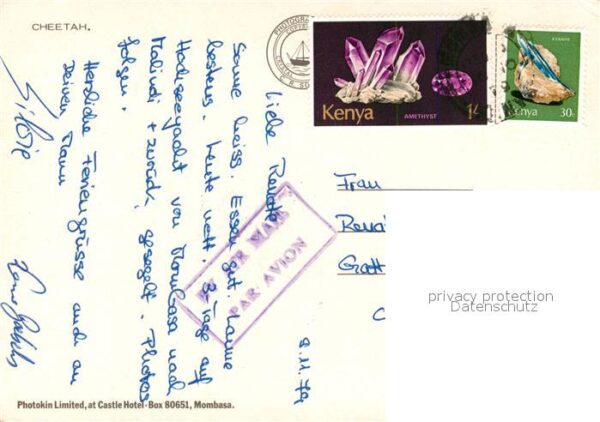 CHEETAH.
PHOTOGRA
COPYR
Kenya
AMETHYST
1/-
KYANITE
Kenya
30c
BY AIR MAIL
PAR AVION
8.11.79
Liebe Renate
Sonne heiss. Essen gut. Laune
bestens. Leute nett. 3 Tage auf
Hochseeyacht von Mombasa nach
Malindi + zurück gesegelt. Photos
folgen.
Herzliche Feriengrüsse auch an
Deinen Mann
Frau
Renat
Gatt
privacy protection
Datenschutz
Photokin Limited, at Castle Hotel-Box 80651, Mombasa.